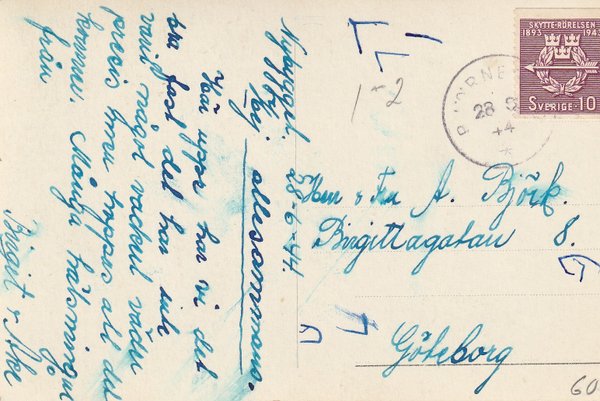 Nybygget. 28-6-44.
Hej allesammans.
Här uppe har vi det
bra fast det har inte
varit något vackert väder
precis ännu hoppas att det
kommer. Många hälsningar
från
Birgit o Åke
SKYTTE-RÖRELSEN
1893 1943
SVERIGE 10
28
44
Herr o Fru A. Björk.
Birgittagatan 8.
Göteborg
1-2
60